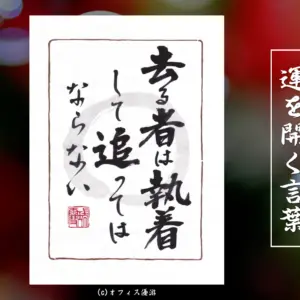 運を開く言葉
去る者は執着
して追っては
ならない
(c)オフィス湯沼